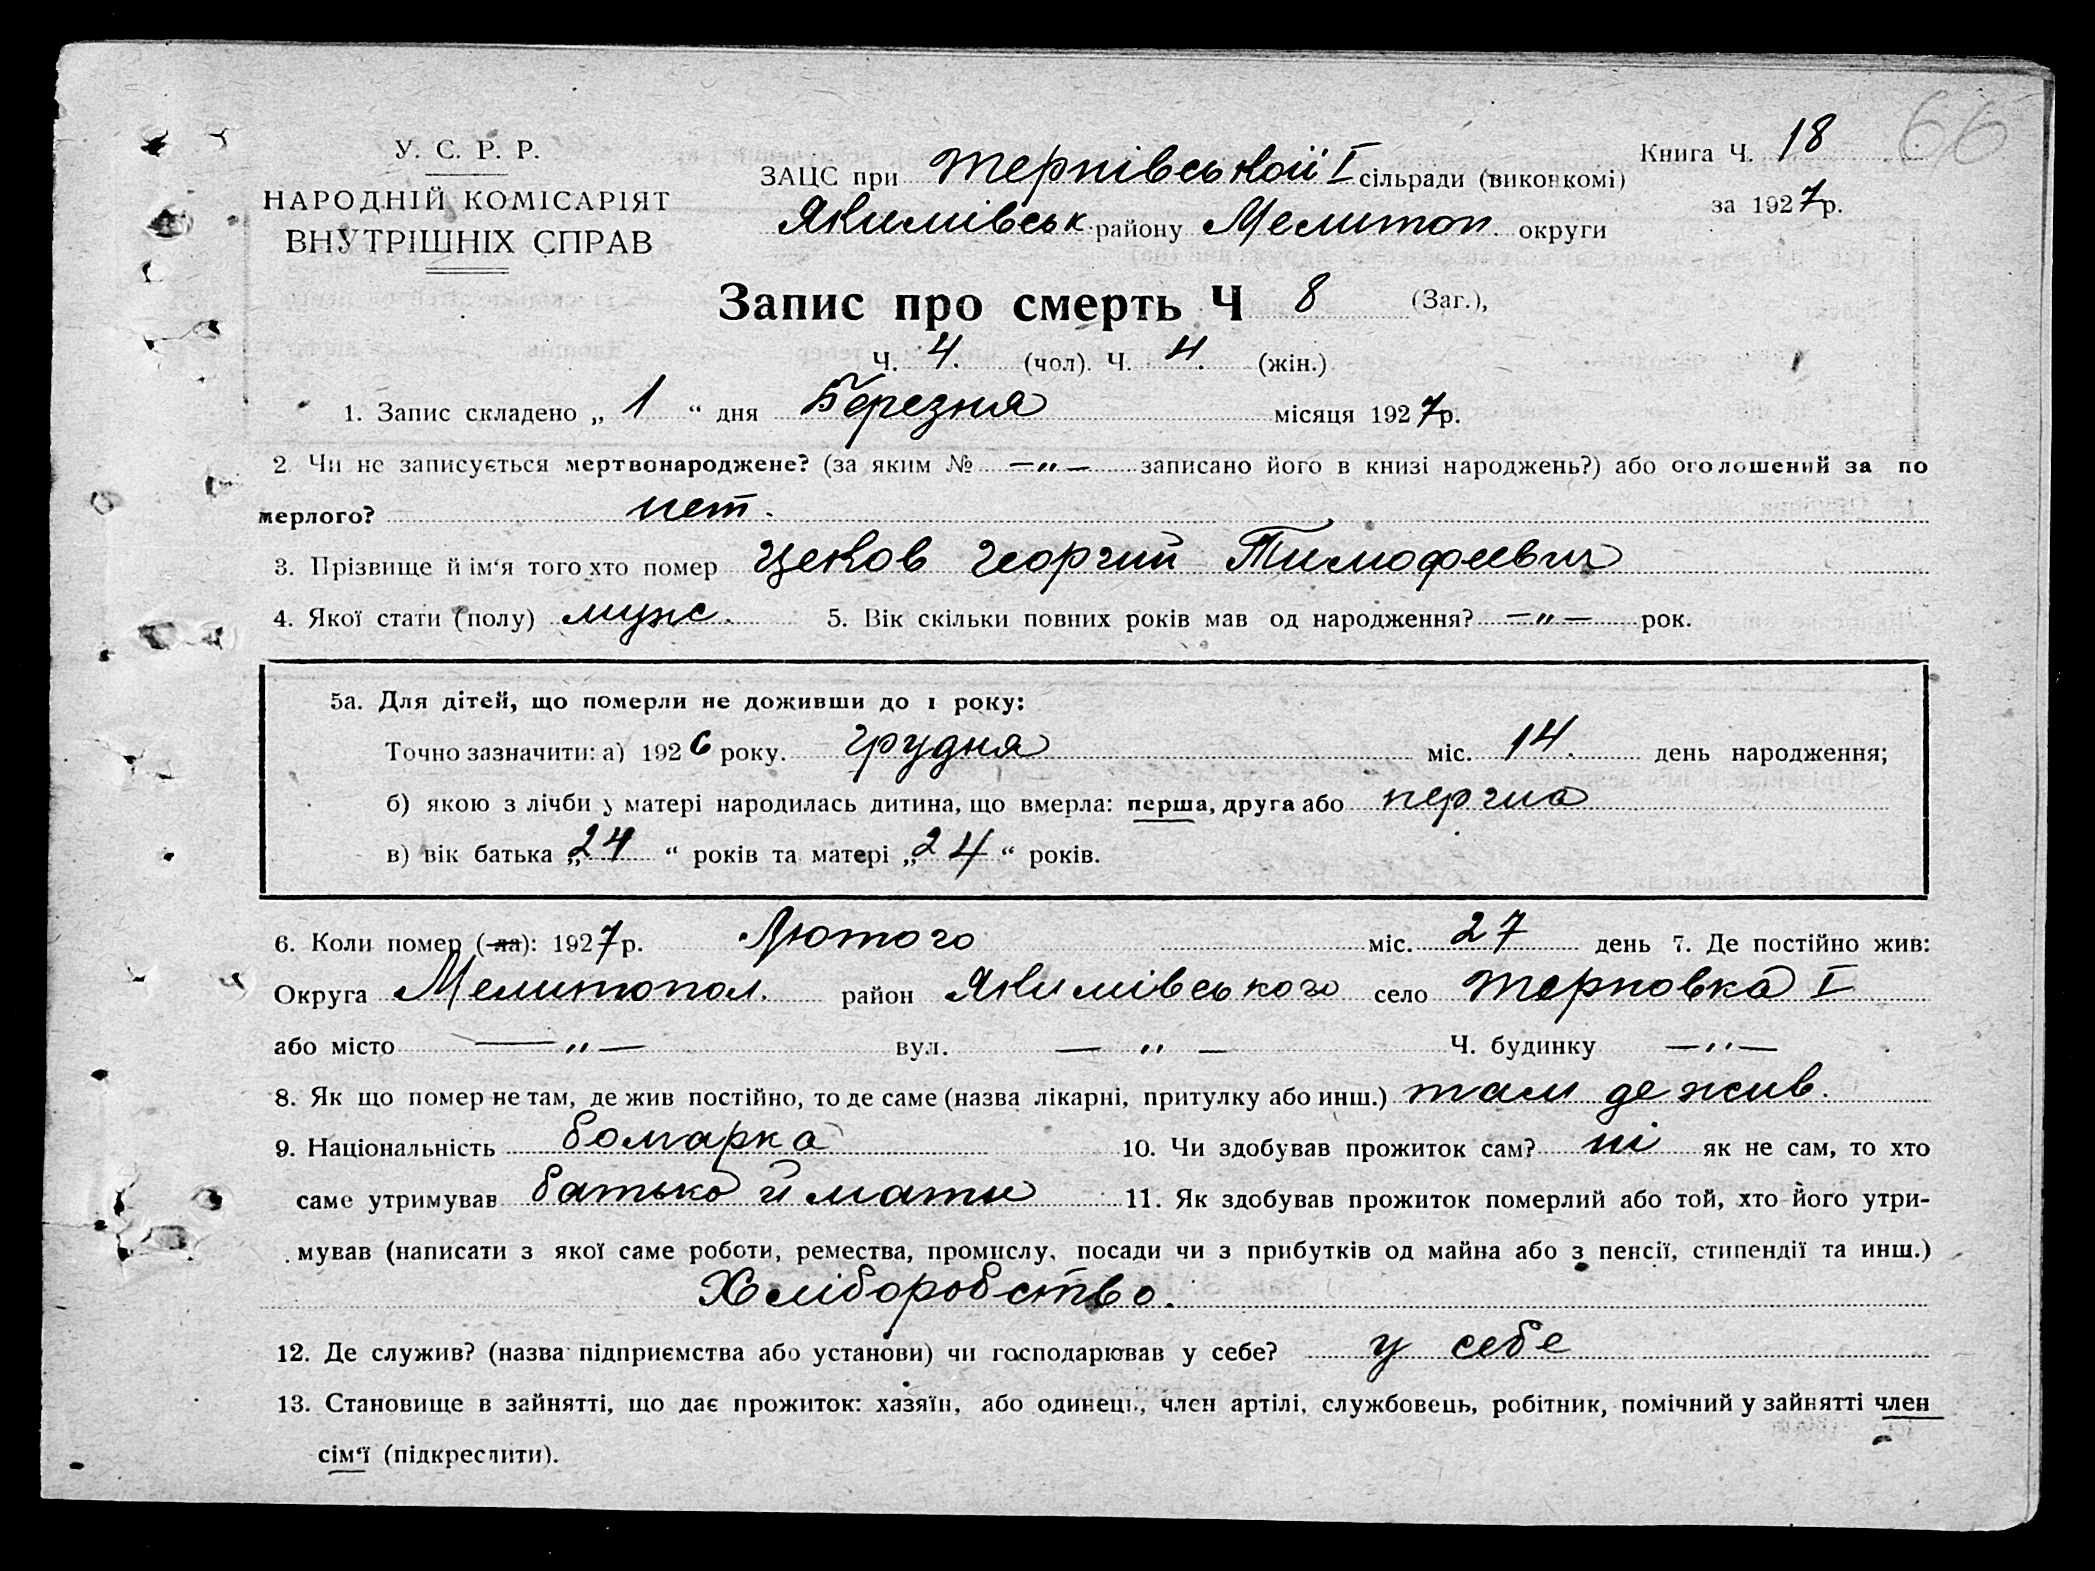 66
У. С. Р. Р.
НАРОДНІЙ КОМІСАРІЯТ
ВНУТРІШНІХ СПРАВ
ЗАЦС при Терпівської І сільради (виконкомі)
Якимівськ. району Мелитоп. округи
Книга Ч. 18
за 1927р.
Запис про смерть Ч 8 (Заг.),
Ч. 4. (чол). Ч. 4. (жін.)
1. Запис складено „ 1 “ дня Березня місяця 1927р.
2 Чи не записується мертвонароджене? (за яким № —„— записано його в книзі народжень?) або оголошений за по
мерлого? нет.
3. Прізвище й ім‘я того хто помер Цеков Георгий Тимофеевич
4. Якої стати (полу) муж. 5. Вік скільки повних років мав од народження? —„— рок.
5а. Для дітей, що померли не доживши до 1 року:
Точно зазначити: а) 1926 року. Грудня міс. 14. день народження;
б) якою з лічби у матері народилась дитина, що вмерла: перша, друга або перша
в) вік батька „24“ років та матері „24“ років.
6. Коли помер (-ла): 1927р. Лютого міс. 27 день 7. Де постійно жив:
Округа Мелитопол. район Якимівського село Терповка І
або місто —„— вул. —„— Ч. будинку —„—
8. Як що помер не там, де жив постійно, то де саме (назва лікарні, притулку або инш.) там де жив.
9. Національність болгарка 10. Чи здобував прожиток сам? ні як не сам, то хто
саме утримував батько й мати 11. Як здобував прожиток померлий або той, хто його утри-
мував (написати з якої саме роботи, ремества, промислу, посади чи з прибутків од майна або з пенсії, стипендії та инш.)
Хліборобство.
12. Де служив? (назва підприємства або установи) чи господарював у себе? у себе
13. Становище в зайнятті, що дає прожиток: хазяїн, або одинець, член артілі, службовець, робітник, помічний у зайнятті член
сім‘ї (підкреслити).